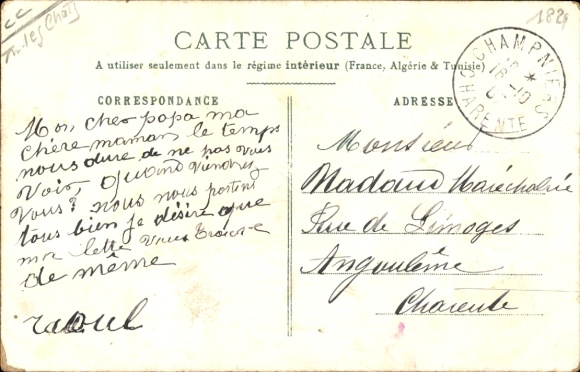 CARTE POSTALE
A utiliser seulement dans le régime intérieur (France, Algérie & Tunisie)
CORRESPONDANCE
Mon cher papa ma
chère maman le temps
nous dure de ne pas vous
voir, quand viendrez
vous? nous nous portons
tous bien je désire que
ma lettre vous trouve
de même
raoul
ADRESSE
Monsieur
Nadaud Maréchalerie
Rue de Limoges
Angoulême
Charente
CHAMPNIERS
CHARENTE